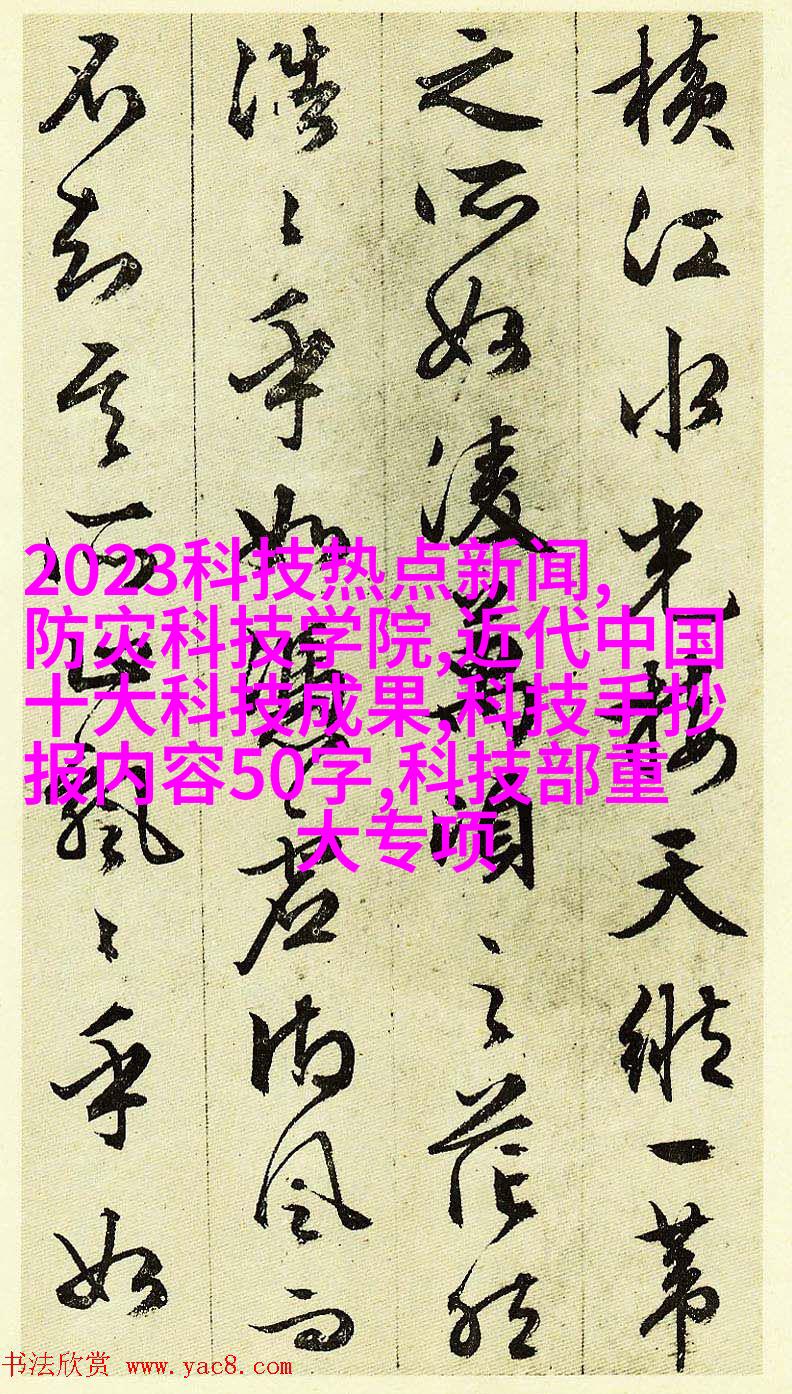 橫江水光接天縱一葦
之所如凌萬頃之茫然
浩々乎如憑虛御風而
不知其所止飄々乎如
2023科技热点新闻,
防灾科技学院,近代中国
十大科技成果,科技手抄
报内容50字,科技部重
大专项
书法欣赏 www.yac8.com